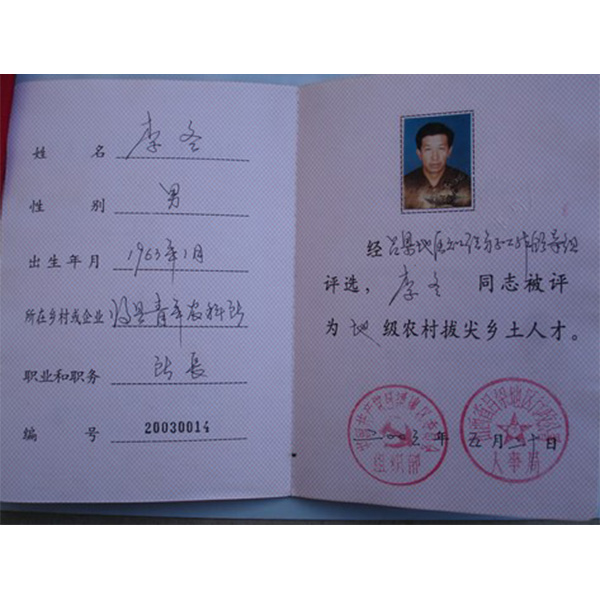 姓名 李冬
性别 男
出生年月 1963年1月
所在乡村或企业 青年农科所
职业和职务 所长
编号 20030014
经吕梁地区知识分子工作领导组
评选，李冬 同志被评
为地级农村拔尖乡土人才。
二00三年五月二十日
组织部
人事局